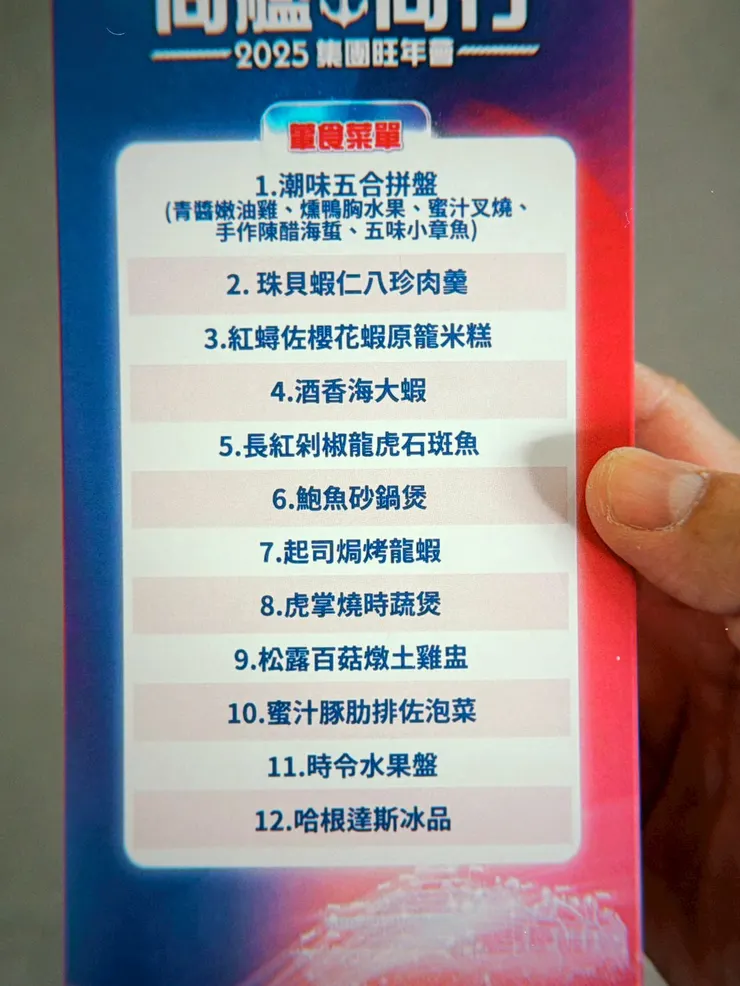 2025 集團旺年會
葷食菜單
1.潮味五合拼盤
(青醬嫩油雞、燻鴨胸水果、蜜汁叉燒、
手作陳醋海蜇、五味小章魚)
2. 珠貝蝦仁八珍肉羹
3.紅蟳佐櫻花蝦原籠米糕
4.酒香海大蝦
5.長紅剁椒龍虎石斑魚
6.鮑魚砂鍋煲
7.起司焗烤龍蝦
8.虎掌燒時蔬煲
9.松露百菇燉土雞盅
10.蜜汁豚肋排佐泡菜
11.時令水果盤
12.哈根達斯冰品